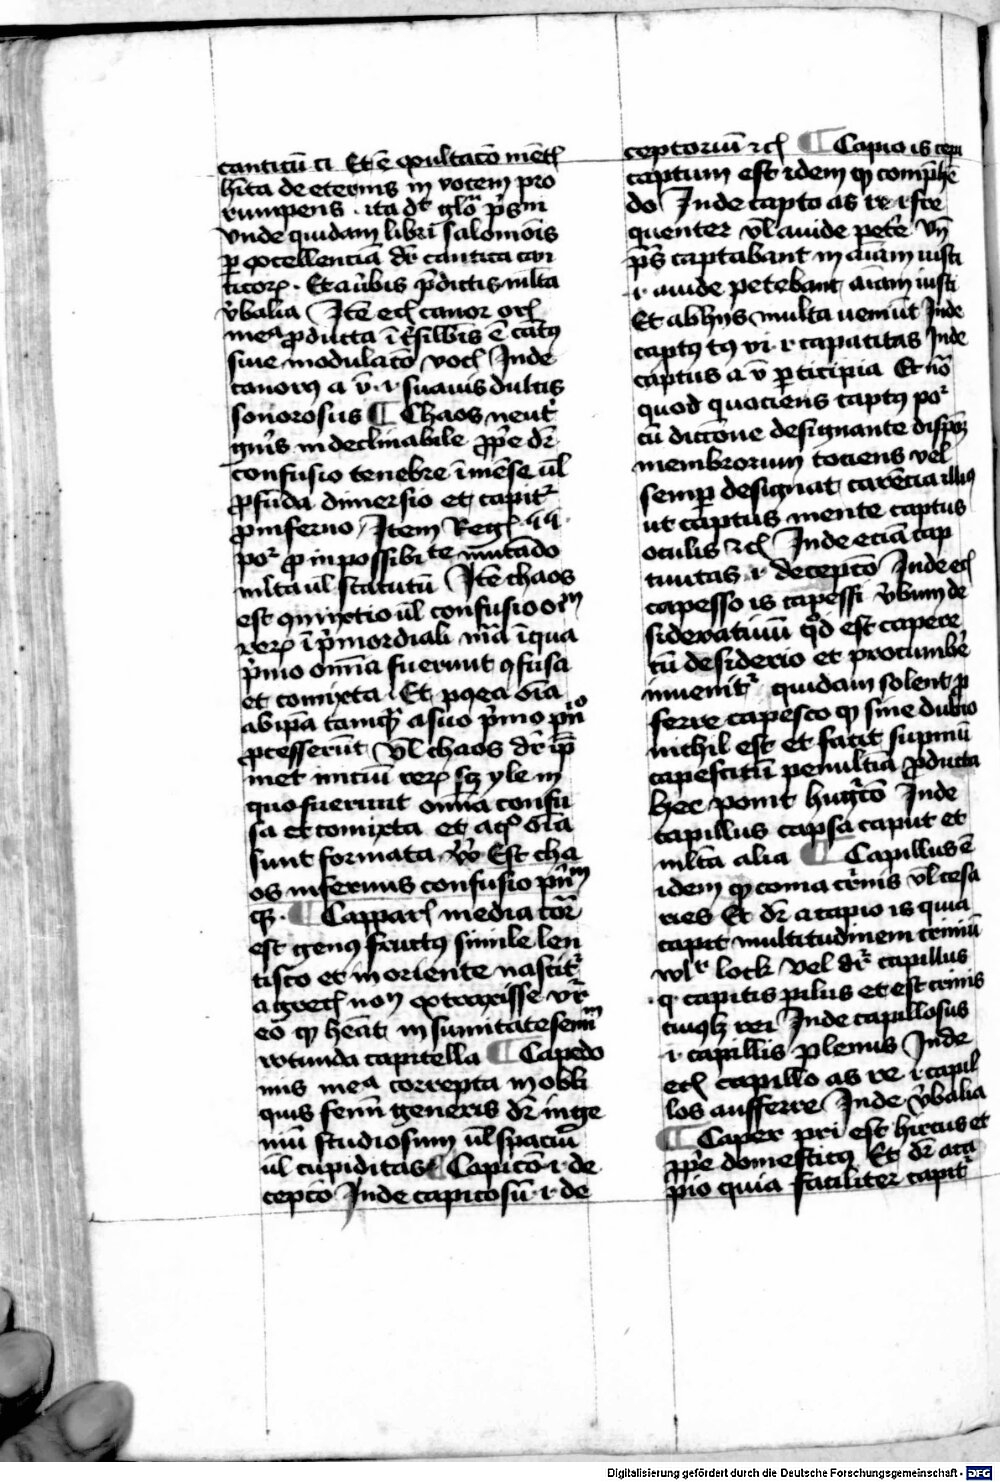 canticū ci Et ē exultacō mēt
hīta de eternis in vocem pro
rumpens . ita dr̄ glō ps̄m
vnde quidam libri salomōis
ꝑ excellenciā dr̄ cantica can
ticoꝝ . Et a v̄bis p̄dictis mlta
v̄balia Itē canor orꝭ
meᵃ ꝓducta ī t̄sillbis ē cātꝰ
siue modulacō vocꝭ Inde
canorꝰ a v̄ · i · suauis dulcis
sonorosus ¶ Chaos neut
gn̄is indeclinabile ꝓp̄e dr̄
confusio tenebre īmēse ul̄
ꝓfūda dimersio et capitᷣ
ꝓ inferno Item Regꝭ
poᷣ ꝓ inpossibi te mutādo
mlta ul̄ statutū Itē chaos
est ɔmixtio ul̄ confusio oīm
reꝝ ī p̄mordiali mā ī qua
p̄mo omnīa fuerunt ɔfusa
et comixta Et postea oīa
ab ipā tamqᷓ a suo p̄mo pn̄
ꝓcesserūt Vl̄ chaos dr̄ ip̄
met iniciū reꝝ scꝫ yle in
quo fuerunt omīa confu
sa et comixta et oīa
sunt formata Est cha
os infernus confusio
¶ Cappar media cor̄
est genꝰ fructꝰ simile len
tisco et in oriente nascitᷣ
a grecꝭ noꝫ extraxisse vr̄
eō ꝙ heāt in sumitate
rotunda capitella ¶ Capedo
nis meᵃ correpta in obli
quis femī generis dr̄ inge
niū studiosum ul̄ spaciū
ul̄ cupiditas ¶ Capicō · i · de
cepcō Inde capicosū · i · de
ceptoriū ⁊cꝭ ¶ Capio is cepi
captum est idem ꝙ comp̄hē
do Inde capto as re · i · fre
quenter vl̄ auide pete Vn̄
ps̄ captabant in aīam iusti
· i · auide petebant aīam iusti
Et ab hijs multa ueniūt Inde
captꝰ tꝰ vi · i · capacitas Inde
captus a v̄ ꝑticipia Et nō
quod quociens captꝰ poᷣ
cū diccōne designante
membrorum tociens vel
semꝑ designat carēcia illiꝰ
ut captus mente captus
oculis ⁊cꝭ Inde eciā cap
tiuitas · i · decepcō Inde
capesso is capessi v̄bum de
sideratiuū qđ est capere
cū desiderio et procumbē
inuenitᷣ quidam solent ꝓ
ferre capesco ꝙ sine dubio
nichil est et facit supinū
capescitū penultia ꝓducta
hec ponit hugᵃcō Inde
capillus capsa caput et
mlta alia ¶ Capillus ē
idem ꝙ coma crinis ul̄ cesa
ries Et dr̄ a capio is quia
capit multitudinem criniū
wlᷣ lock Vel dr̄ capillus
· q · capitis pilus et est crinis
cuiꝰlꝫ rei Inde capillosus
· i · capillis plenus Inde
capillo as re · i · capil
los aufferre Inde v̄balia
¶ Caper pri est hircus et
ꝓp̄e domesticꝰ Et dr̄ a ca
pio quia faciliter capitᷣ
Digitalisierung gefördert durch die Deutsche Forschungsgemeinschaft - DFG